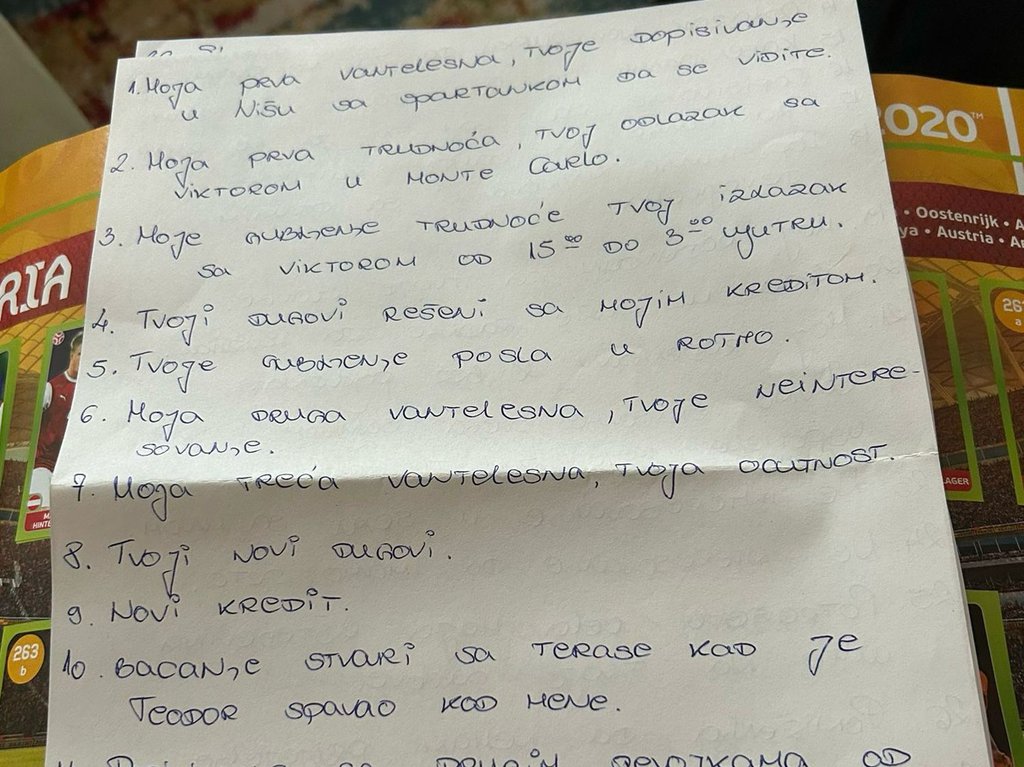 1. Moja prva vantelesna, tvoje dopisivanje
u Nišu sa spartankom da se vidite.
2. Moja prva trudnoća, tvoj odlazak sa
Viktorom u Monte Carlo.
3. Moje gubljenje trudnoće tvoj izlazak
sa Viktorom od 15 00 do 3 00 ujutru.
4. Tvoji dugovi rešeni sa mojim kreditom.
5. Tvoje gubljenje posla u Rotho.
6. Moja druga vantelesna, tvoje neintere-
sovanje.
7. Moja treća vantelesna, tvoja odsutnost.
8. Tvoji novi dugovi.
9. Novi kredit.
10. Bacanje stvari sa terase kad je
Teodor spavao kod mene.
drugim devojkama od
2020™
• Oostenrijk •
• Austria •
RIA
263
b
HINTE
LAGER
26
a